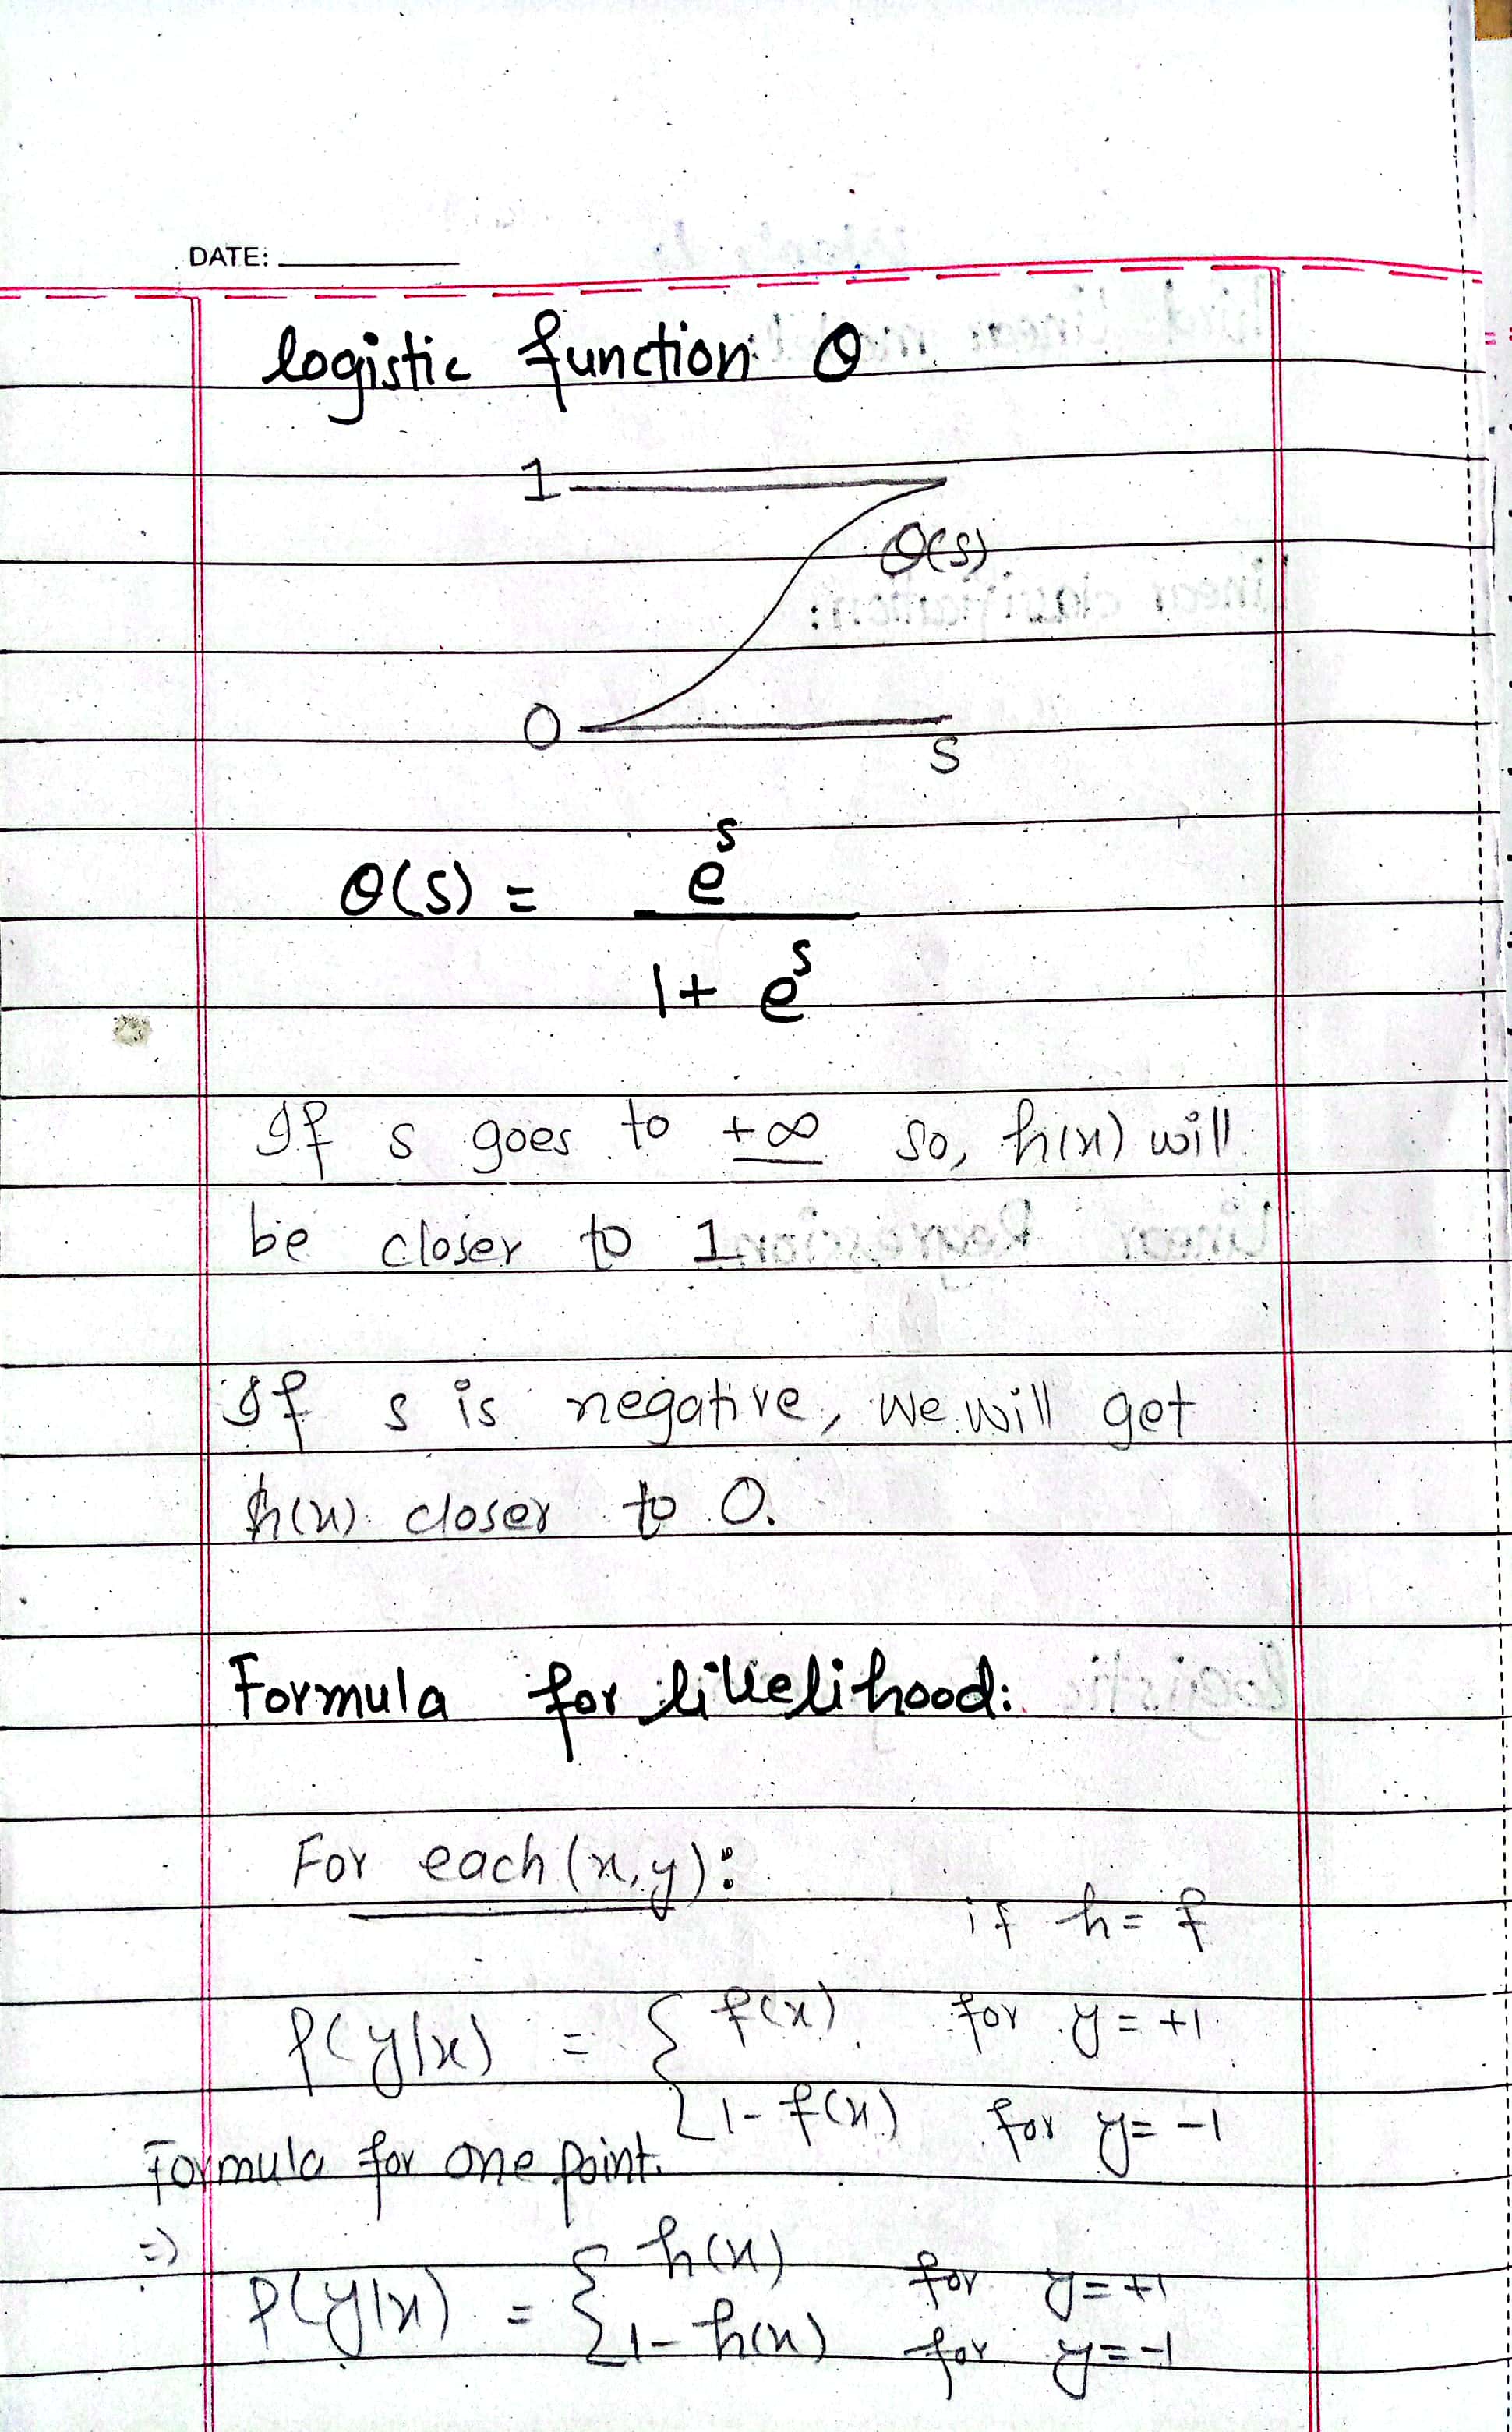 DATE:
logistic function θ
1
θ(s)
0
s
θ(s) = e^s / 1 + e^s
If s goes to +∞ so, h(x) will
be closer to 1
If s is negative, we will get
h(x) closer to 0.
Formula for likelihood:
For each (x,y):
if h = f
P(y|x) = { f(x) for y = +1
1 - f(x) for y = -1
Formula for one point.
=>
P(y|x) = { h(x) for y = +1
1 - h(x) for y = -1